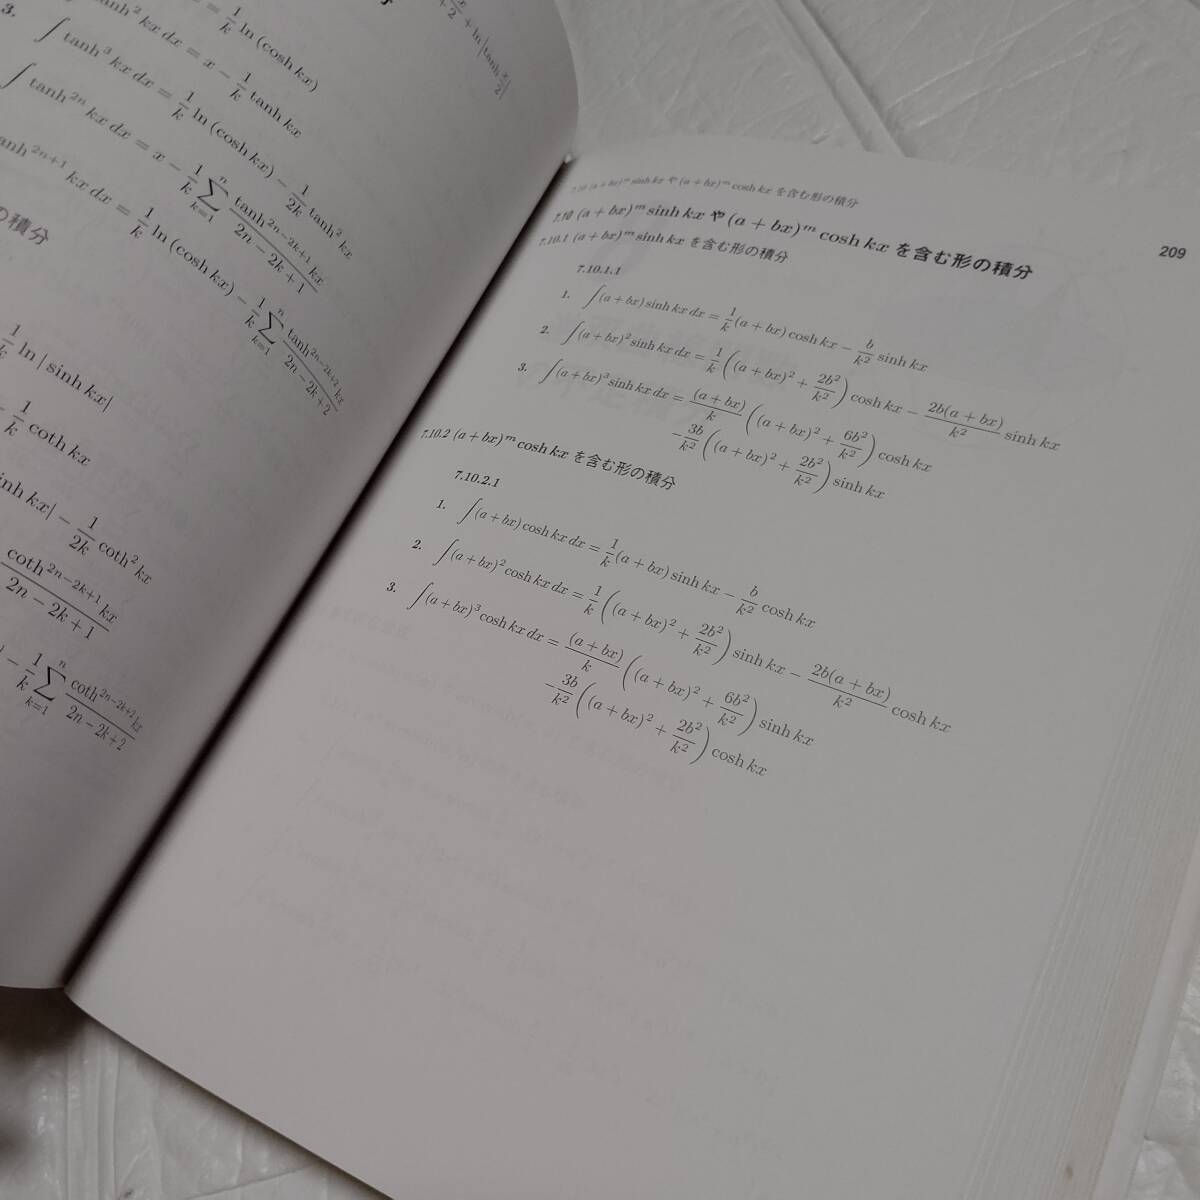 3.
tanh² kx dx = x − 1/k tanh kx
∫ tanh³ kx dx = 1/k ln (cosh kx) − 1/2k tanh² kx
∫ tanh²ⁿ kx dx = x − 1/k ∑ₖ₌₁ⁿ tanh²ⁿ⁻²ᵏ⁺¹ kx / 2n − 2k + 1
tanh²ⁿ⁺¹ kx dx = 1/k ln (cosh kx) − 1/k ∑ₖ₌₁ⁿ tanh²ⁿ⁻²ᵏ⁺² kx / 2n − 2k + 2
の積分
1/k ln | sinh kx|
− 1/k coth kx
sinh kx| − 1/2k coth² kx
coth²ⁿ⁻²ᵏ⁺¹ kx / 2n − 2k + 1
− 1/k ∑ₖ₌₁ⁿ coth²ⁿ⁻²ᵏ⁺² kx / 2n − 2k + 2
7.10 (a + bx)ᵐ sinh kx や (a + bx)ᵐ cosh kx を含む形の積分
209
7.10 (a + bx)ᵐ sinh kx や (a + bx)ᵐ cosh kx を含む形の積分
7.10.1 (a + bx)ᵐ sinh kx を含む形の積分
7.10.1.1
1. ∫(a + bx) sinh kx dx = 1/k (a + bx) cosh kx − b/k² sinh kx
2. ∫(a + bx)² sinh kx dx = 1/k ((a + bx)² + 2b²/k²) cosh kx − 2b(a + bx)/k² sinh kx
3. ∫(a + bx)³ sinh kx dx = (a + bx)/k ((a + bx)² + 6b²/k²) cosh kx
− 3b/k² ((a + bx)² + 2b²/k²) sinh kx
7.10.2 (a + bx)ᵐ cosh kx を含む形の積分
7.10.2.1
1. ∫(a + bx) cosh kx dx = 1/k (a + bx) sinh kx − b/k² cosh kx
2. ∫(a + bx)² cosh kx dx = 1/k ((a + bx)² + 2b²/k²) sinh kx − 2b(a + bx)/k² cosh kx
3. ∫(a + bx)³ cosh kx dx = (a + bx)/k ((a + bx)² + 6b²/k²) sinh kx
− 3b/k² ((a + bx)² + 2b²/k²) cosh kx